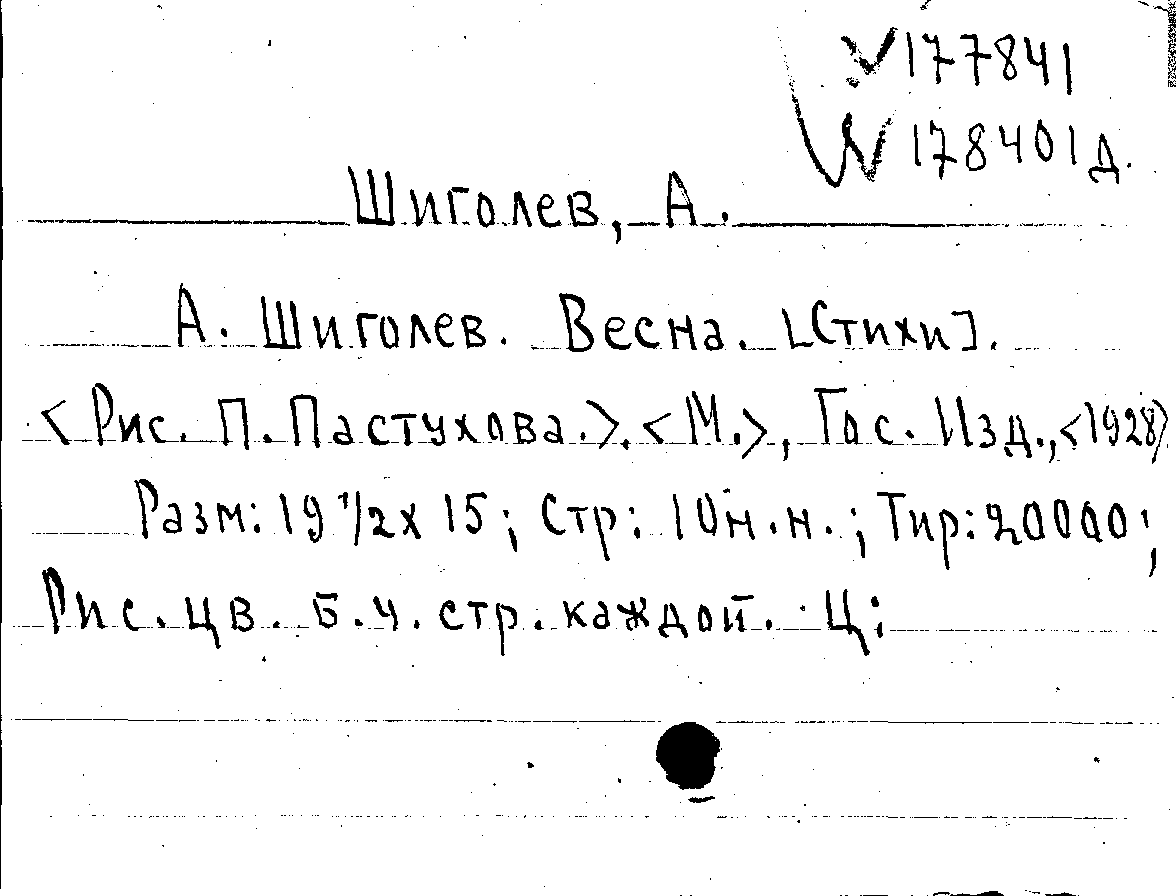 V 177841
W 178401 д.
Шиголев, А.
А. Шиголев. Весна. [Стихи].
<Рис. П. Пастухова.>. <М.>, Гос. Изд., <1928>
Разм: 19 1/2 х 15; Стр: 10 н.н.; Тир: 20000;
Рис. цв. Б.ч. стр. каждой. Ц: